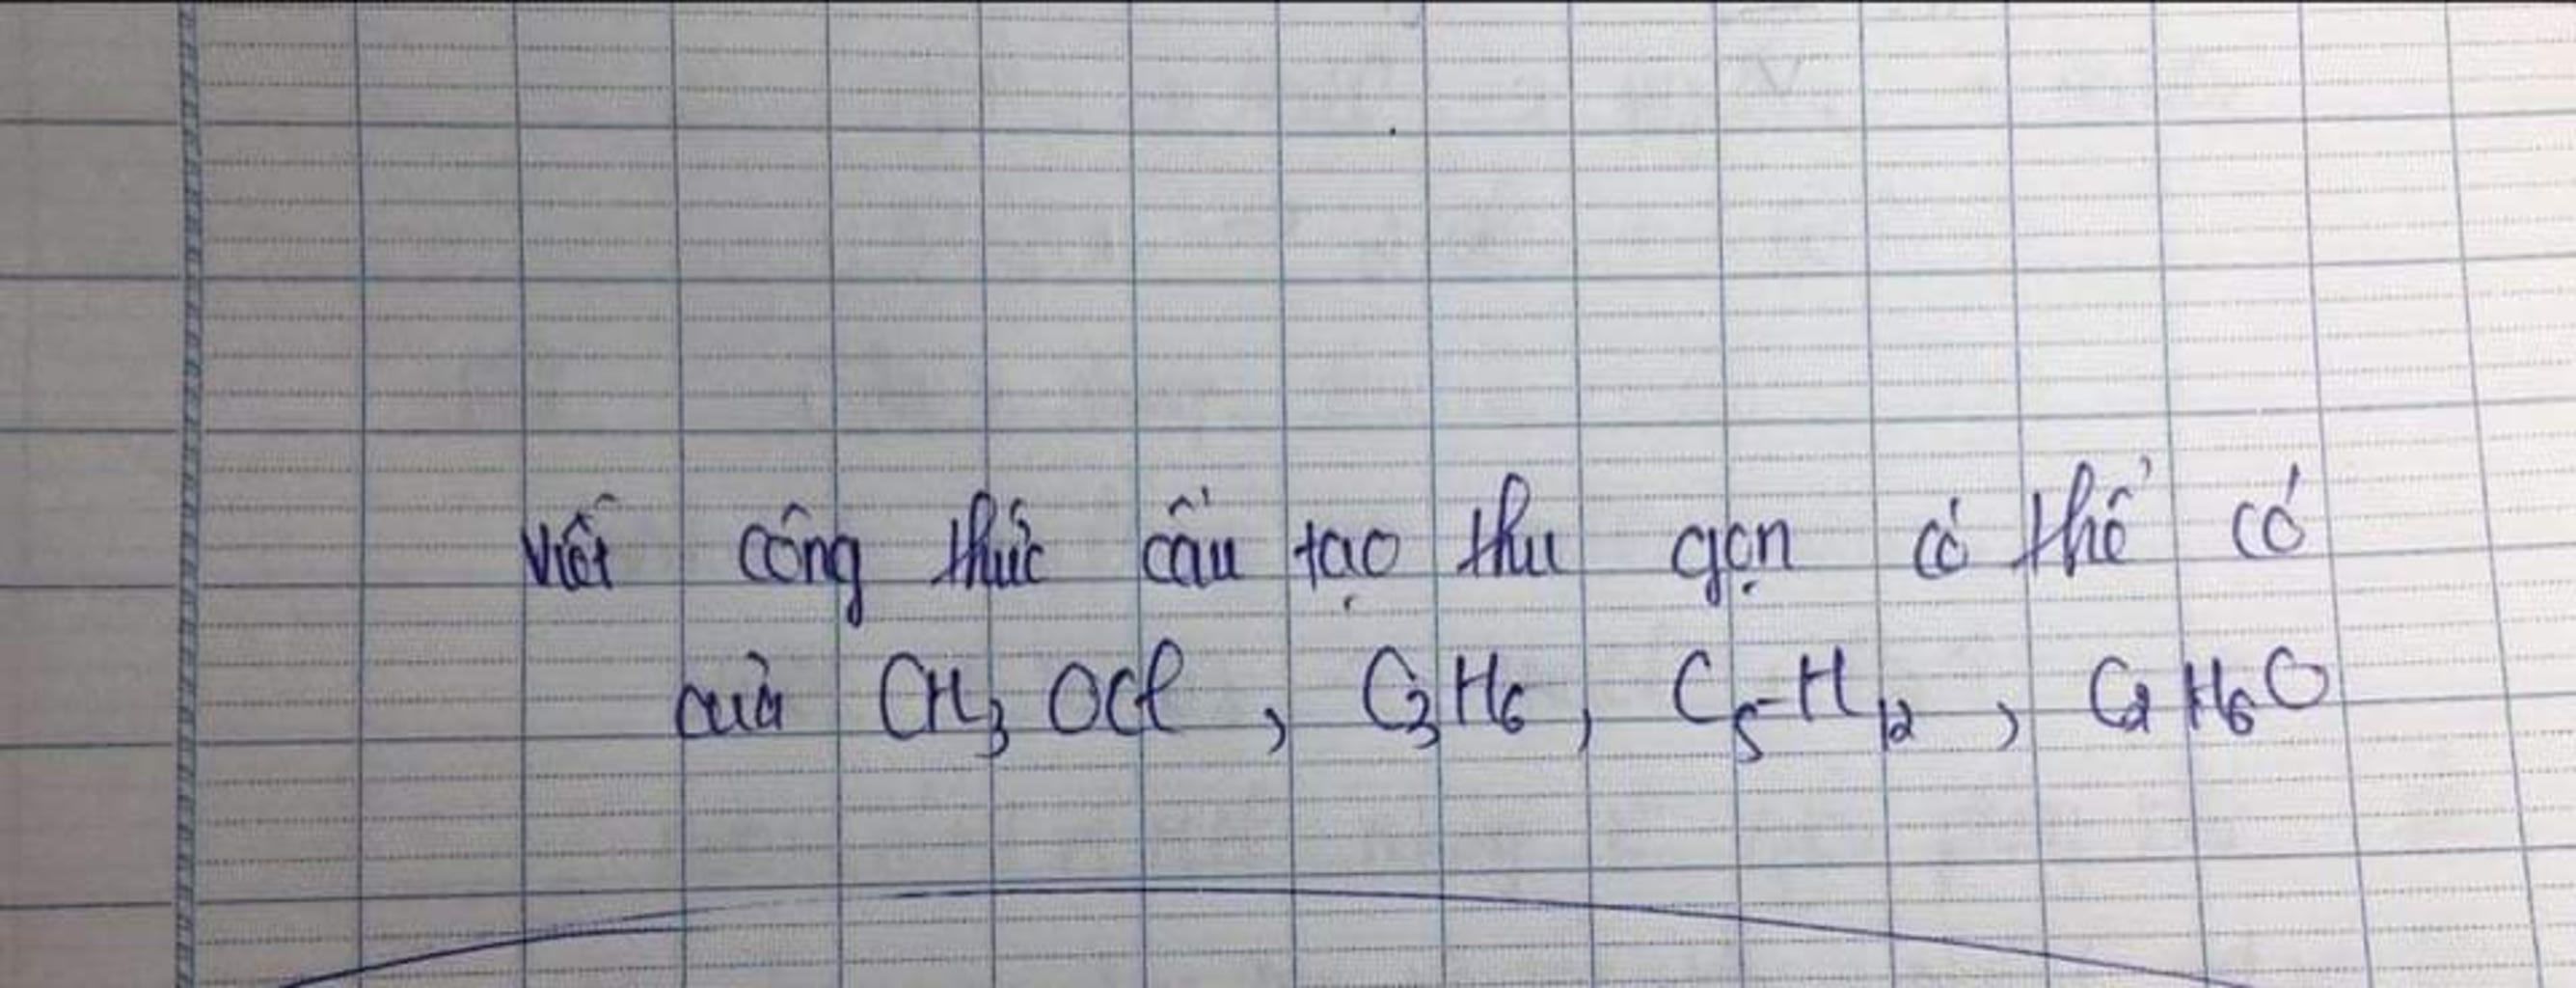 Viết công thức cấu tạo thu gọn có thể có
của CH₃OCl, C₃H₆, C₅H₁₂, C₂H₆O